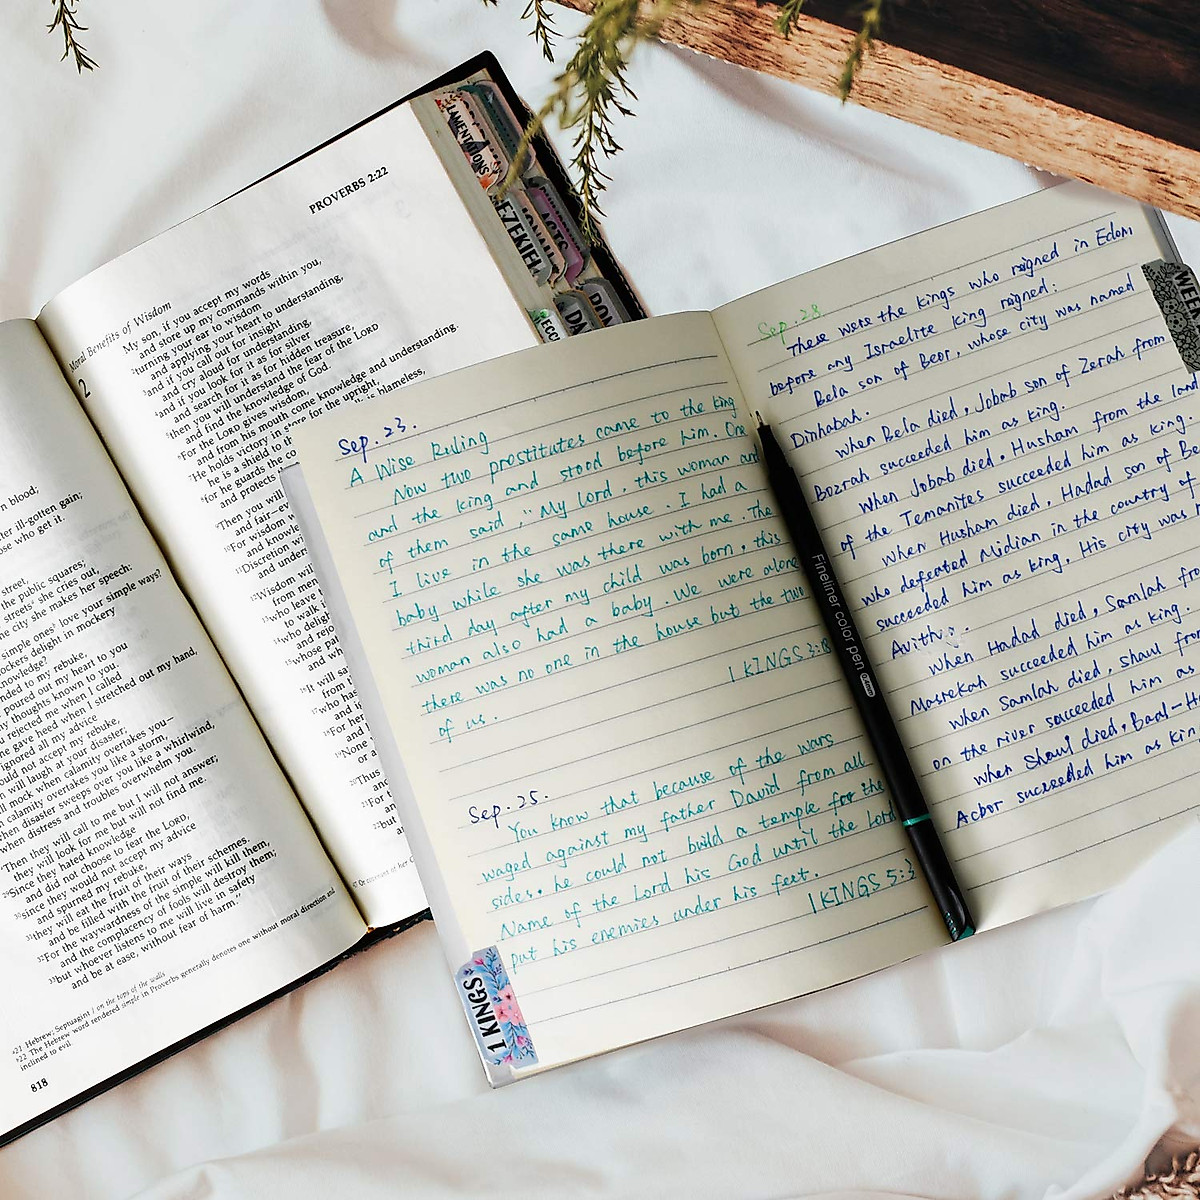 n blood;
her ill-gotten gain;
ose who get it.
street,
the public squares;
streets she cries out,
the city she makes her speech:
simple ones love your simple ways?
mockers delight in mockery
knowledge?
ponded to my rebuke,
poured out my heart to you
thoughts known to you.
rejected me when I called
one gave heed when I stretched out my hand,
ignored all my advice
would not accept my rebuke,
will laugh at your disaster;
will mock when calamity overtakes you—
calamity overtakes you like a storm,
when disaster sweeps over you like a whirlwind,
when distress and troubles overwhelm you.
"Then they will call to me but I will not answer;
they will look for me but will not find me.
Since they hated knowledge
and did not choose to fear the LORD,
since they would not accept my advice
and spurned my rebuke,
they will eat the fruit of their ways
and be filled with the fruit of their schemes.
For the waywardness of the simple will kill them,
and the complacency of fools will destroy them;
but whoever listens to me will live in safety
and be at ease, without fear of harm."
21 Hebrew; Septuagint / on the tops of the walls
22 The Hebrew word rendered simple in Proverbs generally denotes one without moral direction and
inclined to evil.
818
PROVERBS 2:22
Moral Benefits of Wisdom
2
My son, if you accept my words
and store up my commands within you,
turning your ear to wisdom
and applying your heart to understanding,
and if you call out for insight
and cry aloud for understanding,
and if you look for it as for silver
and search for it as for hidden treasure,
then you will understand the fear of the LORD
and find the knowledge of God.
For the LORD gives wisdom,
and from his mouth come knowledge and understanding.
He holds victory in store for the upright,
he is a shield to th is blameless,
for he guards the co
and protects
Then you will
and fair—ev
For wisdom w
and knowle
Discretion w
and under
Wisdom wil
from men
who leave
to walk i
who delig
and rejo
whose pat
and wh
It will sa
from
who has
and i
For her
and
None
or a
Thus
and
For t
and
but
LAMENTATIONS
EZEKIEL
JONAH
ACTS
ECC
DA
Sep.23.
A Wise Ruling
Now two prostitutes came to the king
and the king and stood before him. One
of them said, "My lord, this woman an
I live in the same house. I had a
baby while she was there with me. The
third day after my child was born, this
woman also had a baby. We were alone
there was no one in the house but the two
of us.
1 KINGS 3:18
Sep.25.
You know that because of the wars
waged against my father David from all
sides. he could not build a temple for the
Name of the Lord his God until the Lord
put his enemies under his feet.
1 KINGS 5:3
1 KINGS
Fineliner color pen 0.4mm
Sep.28
These were the kings who reigned in Edom
before any Israelite king reigned:
Bela son of Beor, whose city was named
Dinhabah.
When Bela died, Jobab son of Zerah from
Bozrah succeeded him as king.
When Jobab died, Husham from the land
of the Temanites succeeded him as king.
When Husham died, Hadad son of Be
who defeated Midian in the country of
succeeded him as king. His city was n
Avith.
When Hadad died, Samlah fro
Masrekah succeeded him as king.
When Samlah died, Shaul fro
on the river succeeded him as
When Shaul died, Baal-Ha
Acbor succeeded him as kin